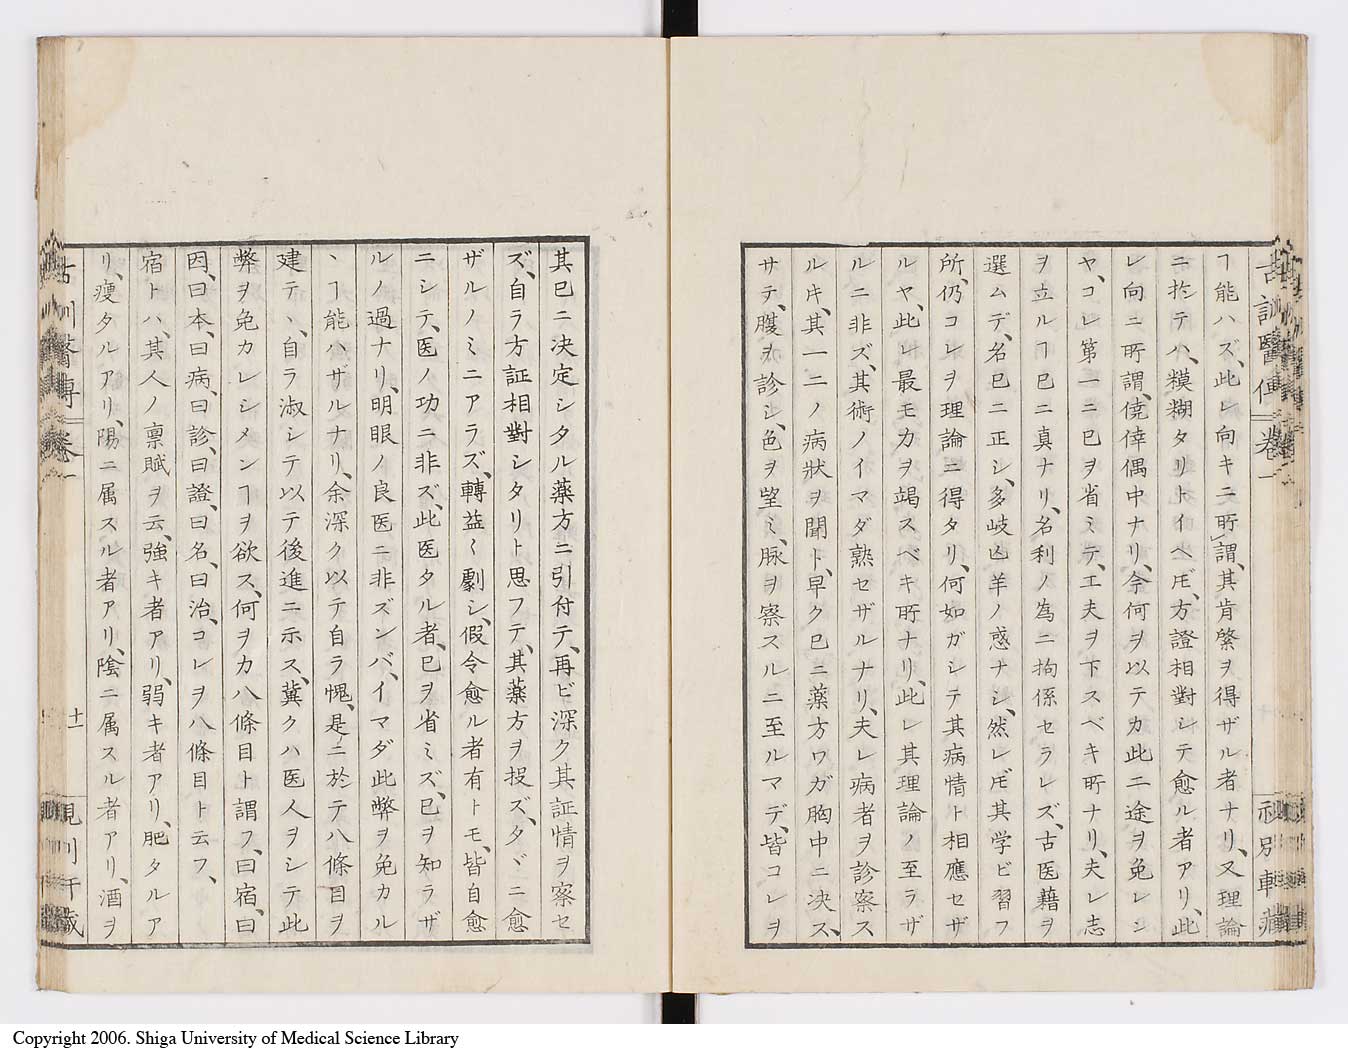 古訓醫傳 卷一
ヿ能ハズ、此レ向キニ所謂、其肯綮ヲ得ザル者ナリ、又理論
ニ於テハ、糢糊タリトイヘ𪜈、方證相對シテ愈ル者アリ、此
レ向ニ所謂、僥倖偶中ナリ、今何ヲ以テカ此二途ヲ免レン
ヤ、コレ第一ニ已ヲ省ミテ、工夫ヲ下スベキ所ナリ、夫レ志
ヲ立ルヿ已ニ真ナリ、名利ノ為ニ拘係セラレズ、古医藉ヲ
選ムデ、名已ニ正シ、多岐凶羊ノ惑ナシ、然レ𪜈其学ビ習フ
所、仍コレヲ理論ニ得タリ、何如ガシテ其病情ト相應セザ
ルヤ、此レ最モカヲ竭スベキ所ナリ、此レ其理論ノ至ラザ
ルニ非ズ、其術ノイマダ熟セザルナリ、夫レ病者ヲ診察ス
ル𪜈、其一二ノ病狀ヲ聞ト、早ク已ニ藥方ワガ胸中ニ決ス、
サテ、腹ヲ診シ、色ヲ望ミ、脉ヲ察スルニ至ルマデ、皆コレヲ
其已ニ决定シタル藥方ニ引付テ、再ビ深ク其証情ヲ察セ
ズ、自ラ方証相對シタリト思フテ、其薬方ヲ投ズ、タヾニ愈
ザルノミニアラズ、轉益〱劇シ、假令愈ル者有トモ、皆自愈
ニシテ、医ノ功ニ非ズ、此医タル者、已ヲ省ミズ、已ヲ知ラザ
ルノ過ナリ、明眼ノ良医ニ非ズンバ、イマダ此弊ヲ免カル
ヽヿ能ハザルナリ、余深ク以テ自ラ愧、是ニ於テ八條目ヲ
建テヽ、自ラ淑シテ以テ後進ニ示ス、冀クハ医人ヲシテ此
弊ヲ免カレシメンヿヲ欲ス、何ヲカ八條目ト謂フ、曰宿、曰
因、曰本、曰病、曰診、曰證、曰名、曰治、コレヲ八條目ト云フ、
宿トハ、其人ノ稟賦ヲ云、強キ者アリ、弱キ者アリ、肥タルア
リ、瘦タルアリ、陽ニ属スル者アリ、陰ニ属スル者アリ、酒ヲ
十一
Copyright 2006. Shiga University of Medical Science Library